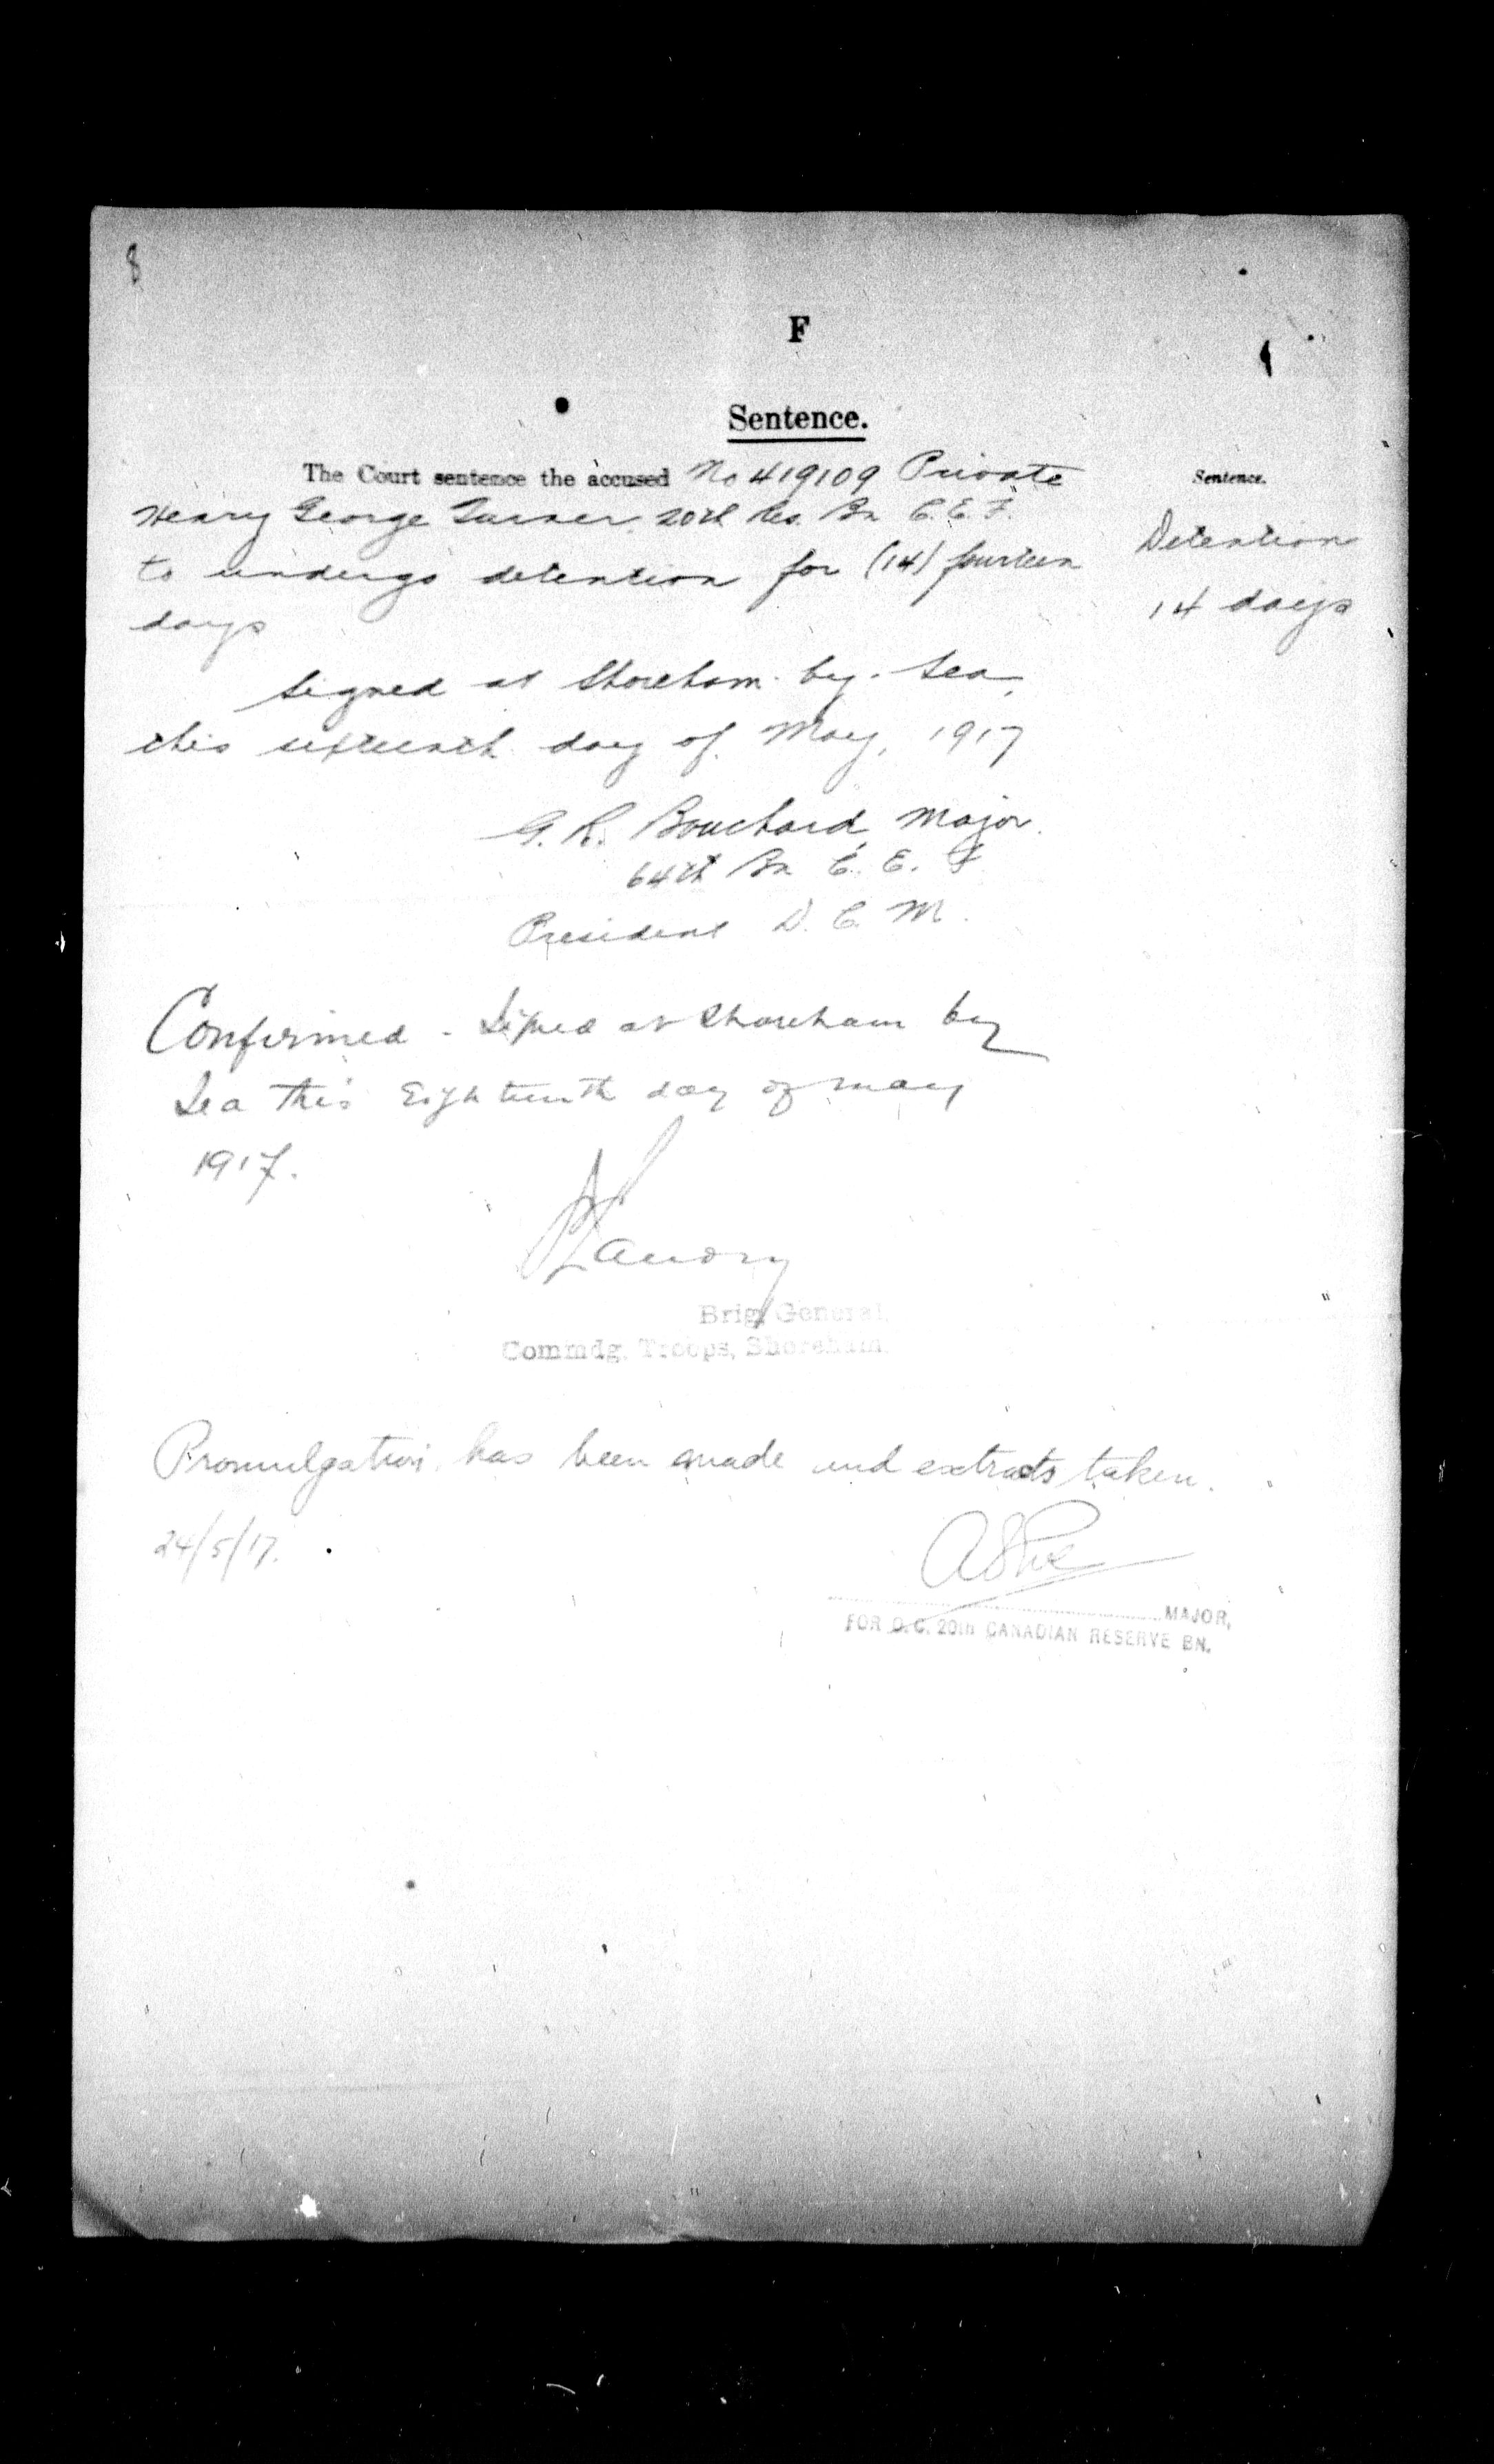 8
F
Sentence.
The Court sentence the accused No 419109 Private
Henry George Turner, 20th Res. Bn C.E.F.
to undergo detention for (14) fourteen
days
Sentence.
Detention
14 days
Signed at Shoreham-by-Sea,
this sixteenth day of May, 1917
G. R. Bouchard, Major.
64th Bn C. E. F
President D. C. M.
Confirmed - Signed at Shoreham by
Sea this Eighteenth day of May
1917.
Landry
Brig. General,
Commdg. Troops, Shoreham.
Promulgation has been made and extracts taken.
24/5/17.
MAJOR,
FOR O.C. 20th CANADIAN RESERVE BN.